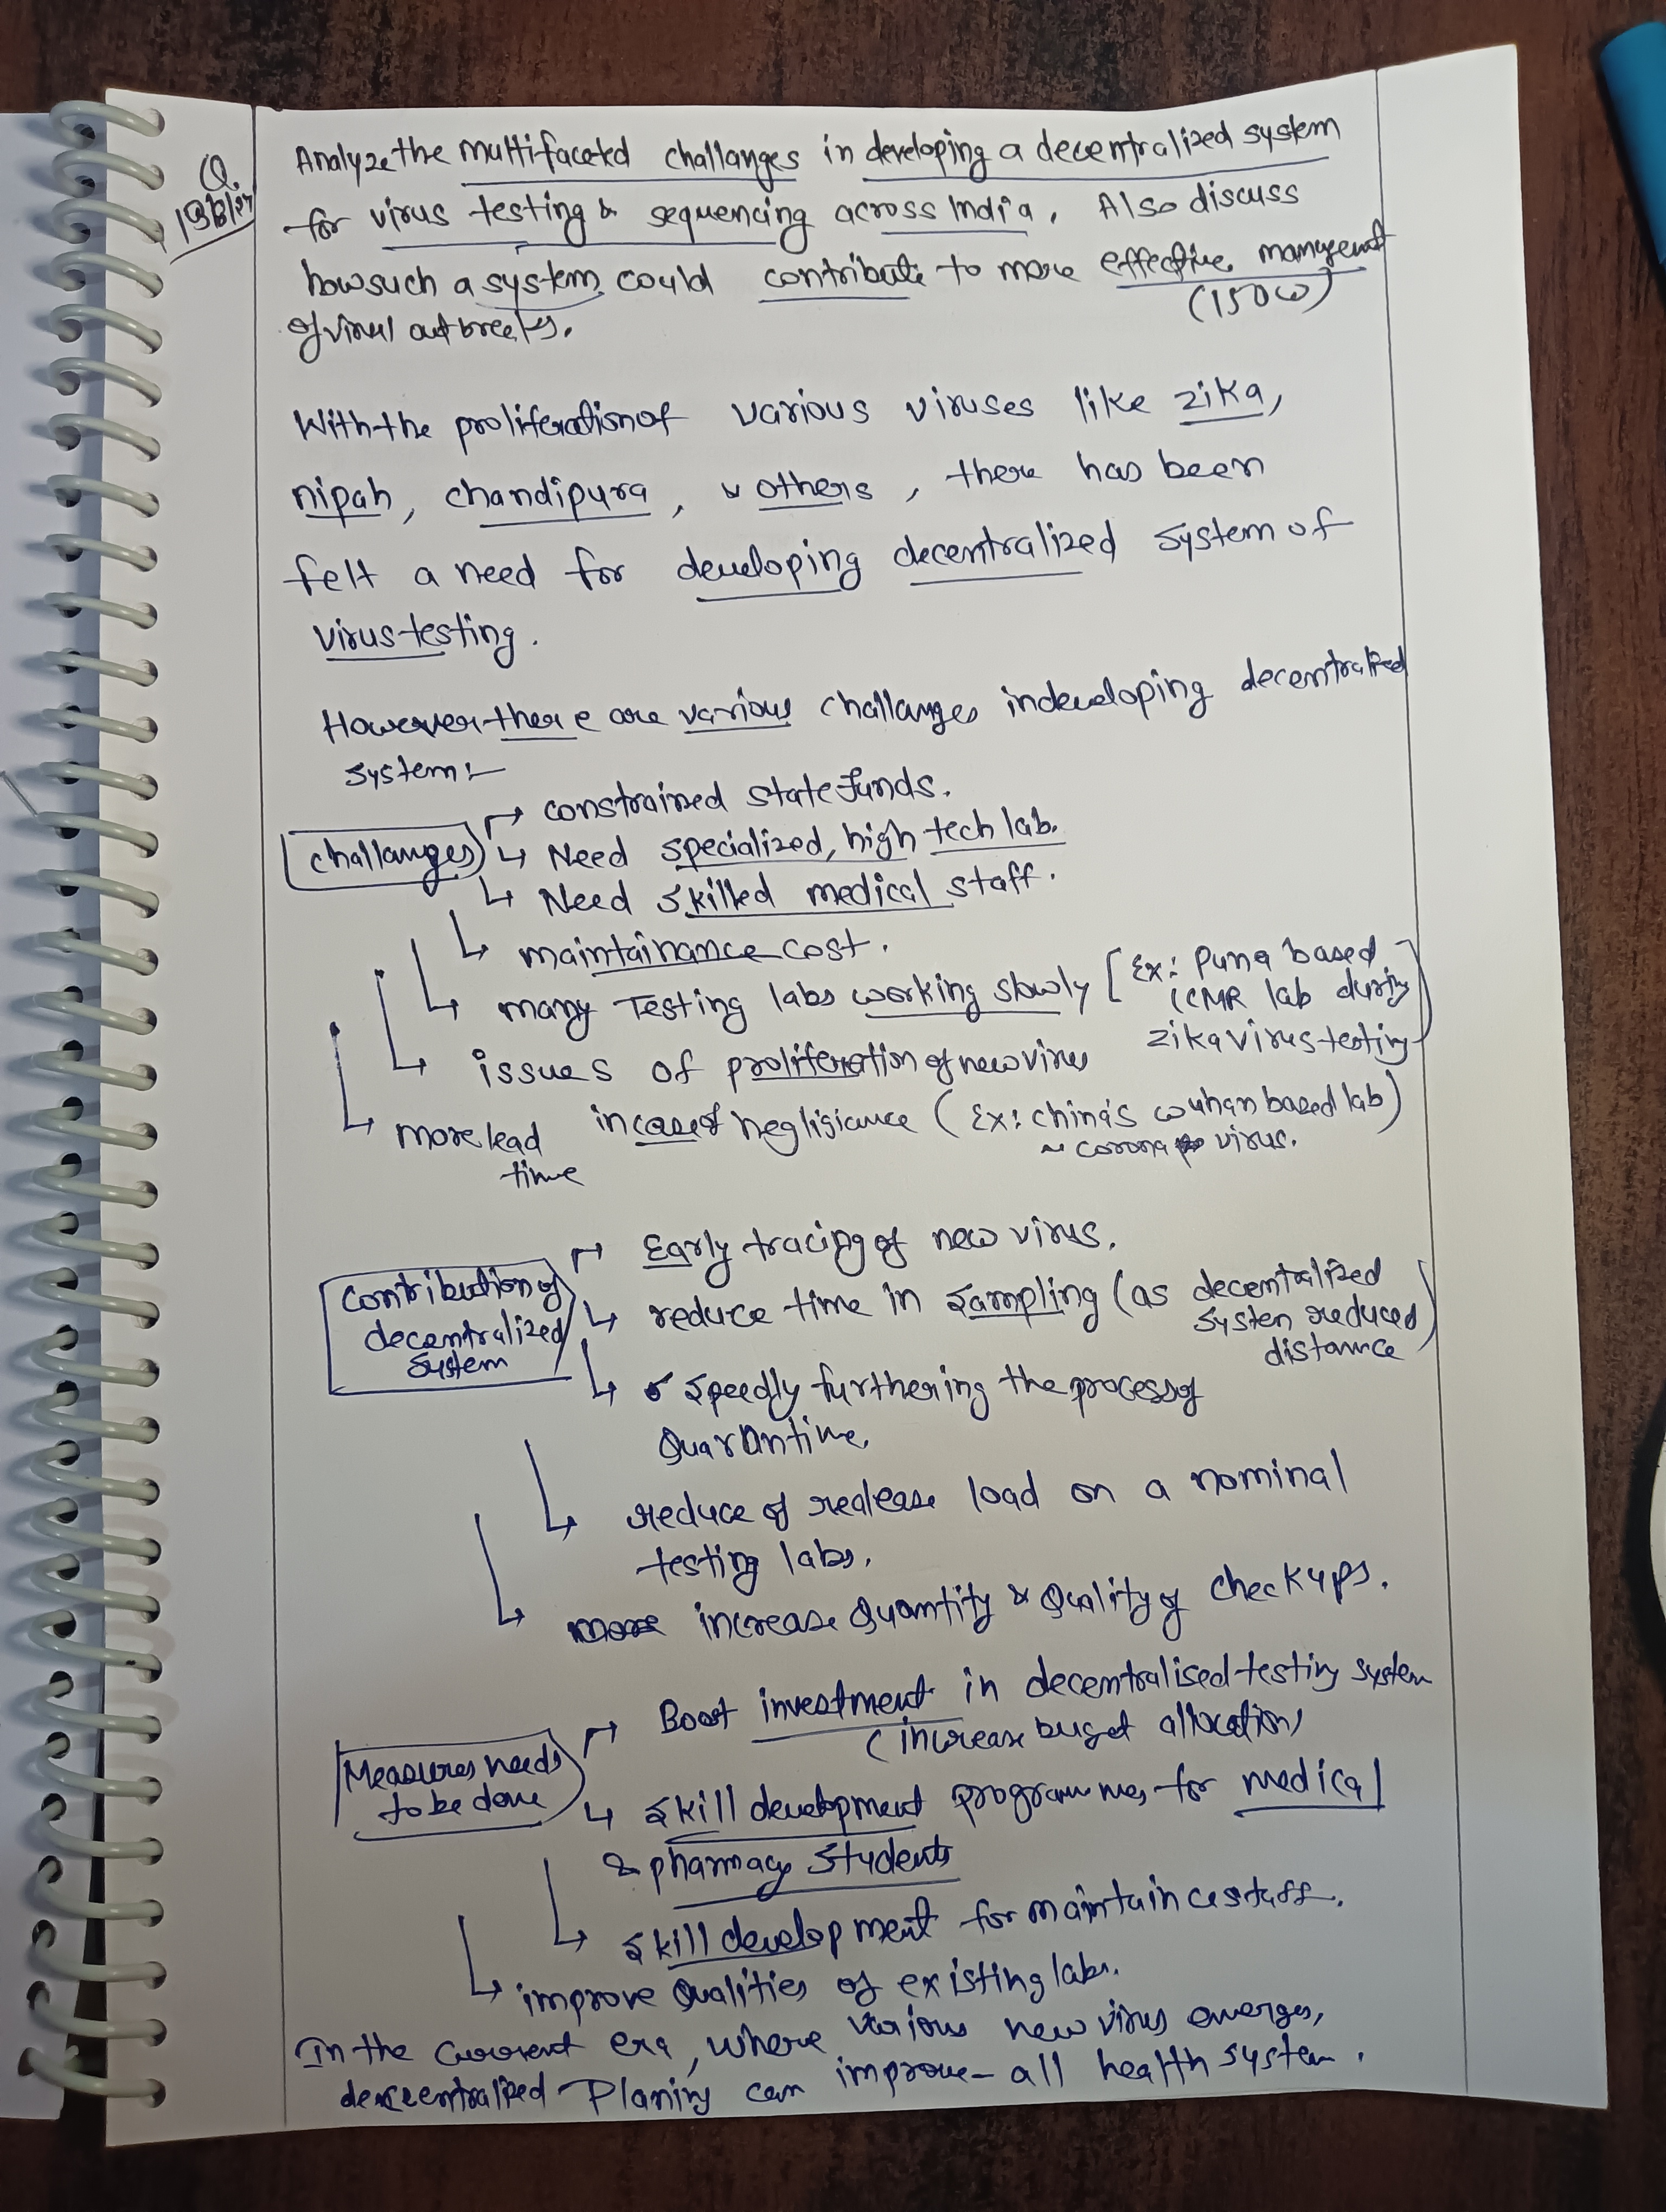 Q.
Analyze the multifaceted challanges in developing a decentralized system
for virus testing & sequencing across India. Also discuss
how such a system could contribute to more effective management
of viral outbreaks.
(150w)
With the proliferation of various viruses like zika,
nipah, chandipura, & others, there has been
felt a need for developing decentralized system of
virus testing.
However there are various challanges in developing decentralized
system:-
challanges
constrained state funds.
Need specialized, high tech lab.
Need skilled medical staff.
maintainance cost.
many Testing labs working slowly [Ex: Puna based
ICMR lab during
zika virus testing
issues of proliferation of new virus
in case of negligiance (Ex: china's wuhan based lab)
~ corona virus.
more lead
time
Contribution of
decentralized
system
Early tracing of new virus.
reduce time in sampling (as decentralized
system reduced
distance
speedly furthering the process of
Quarantine.
reduce of realease load on a nominal
testing labs.
increase Quantity & Quality of checkups.
Measures needs
to be done
Boost investment in decentralised testing system
(increase buget allocation)
skill development programmes for medical
& pharmacy students
skill development for maintaince staff.
improve Qualities of existing labs.
In the current era, where various new virus emerges,
decentralized Planing can improve all health system.